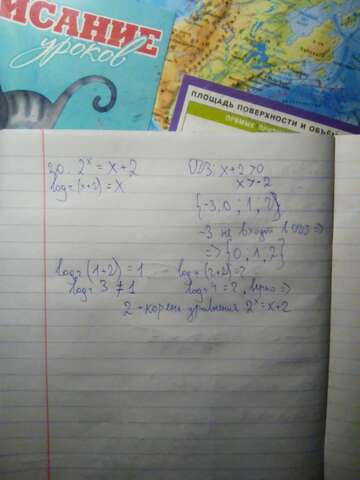 ИСАНИЕ
уроков
ПЛОЩАДЬ ПОВЕРХНОСТИ И ОБЪЕ
30. 2ˣ = x+2
log₂(x+2) = x
ОДЗ: x+2>0
x>-2
{-3,0; 1, 2}
-3 не входит в ОДЗ =>
=> {0, 1, 2}
log₂(1+2) = 1
log₂ 3 ≠ 1
log₂(2+2)=2
log₂ 4 = 2, верно =>
2 - корень уравнения 2ˣ=x+2